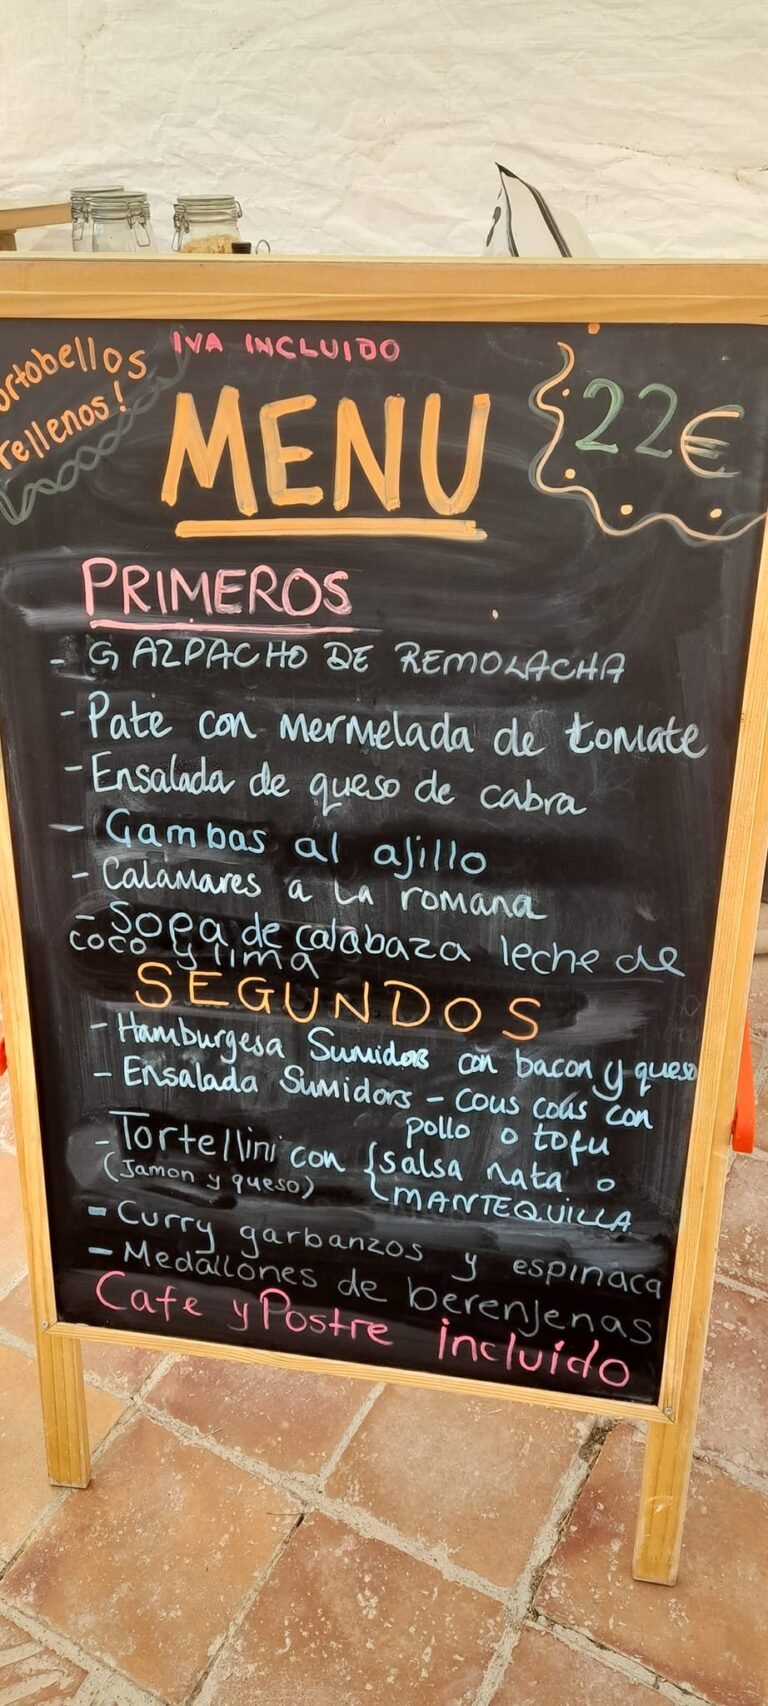 IVA INCLUIDO
ortobellos
rellenos!
MENU
22€
PRIMEROS
- GAZPACHO DE REMOLACHA
- Pate con mermelada de tomate
- Ensalada de queso de cabra
- Gambas al ajillo
- Calamares a La romana
- Sopa de calabaza leche de
coco y lima
SEGUNDOS
- Hamburgesa Sumidors con bacon y queso
- Ensalada Sumidors - cous cous con
pollo o tofu
- Tortellini con { salsa nata o
(Jamon y queso) MANTEQUILLA
- Curry garbanzos y espinaca
- Medallones de berenjenas
Cafe y Postre incluido